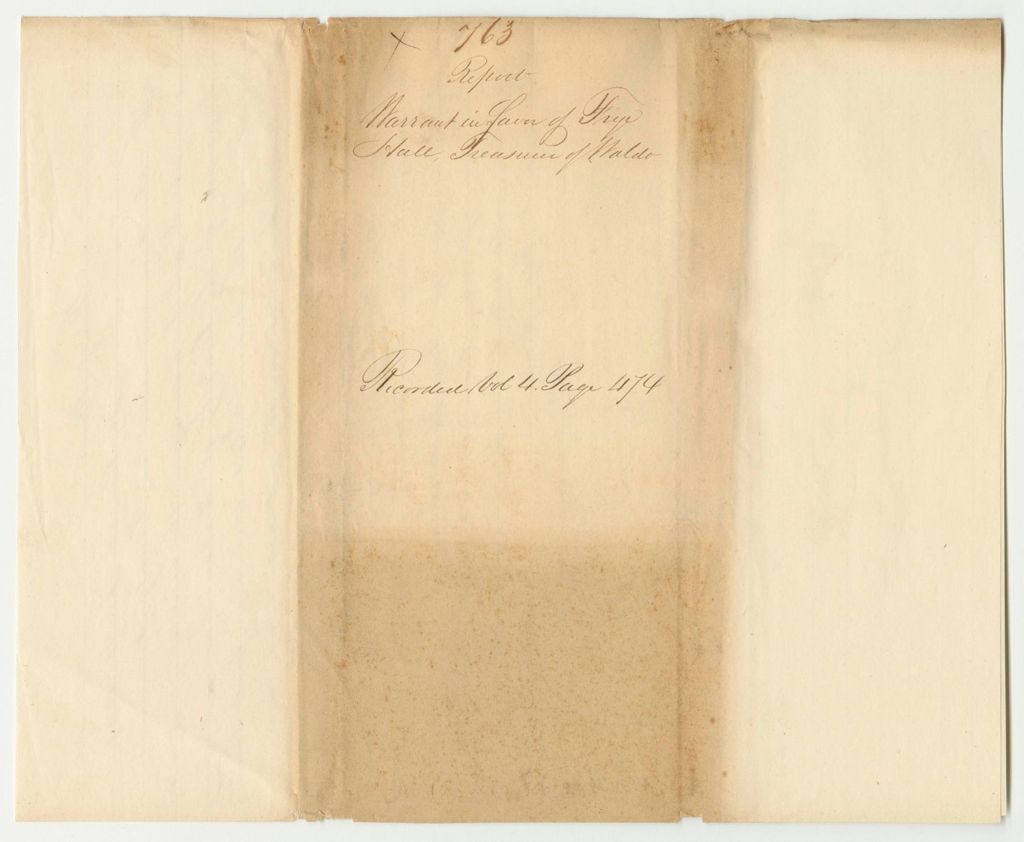 X 763
Report
Warrant in favor of Frye
Hall, Treasurer of Waldo
Recorded Vol 4. Page 474